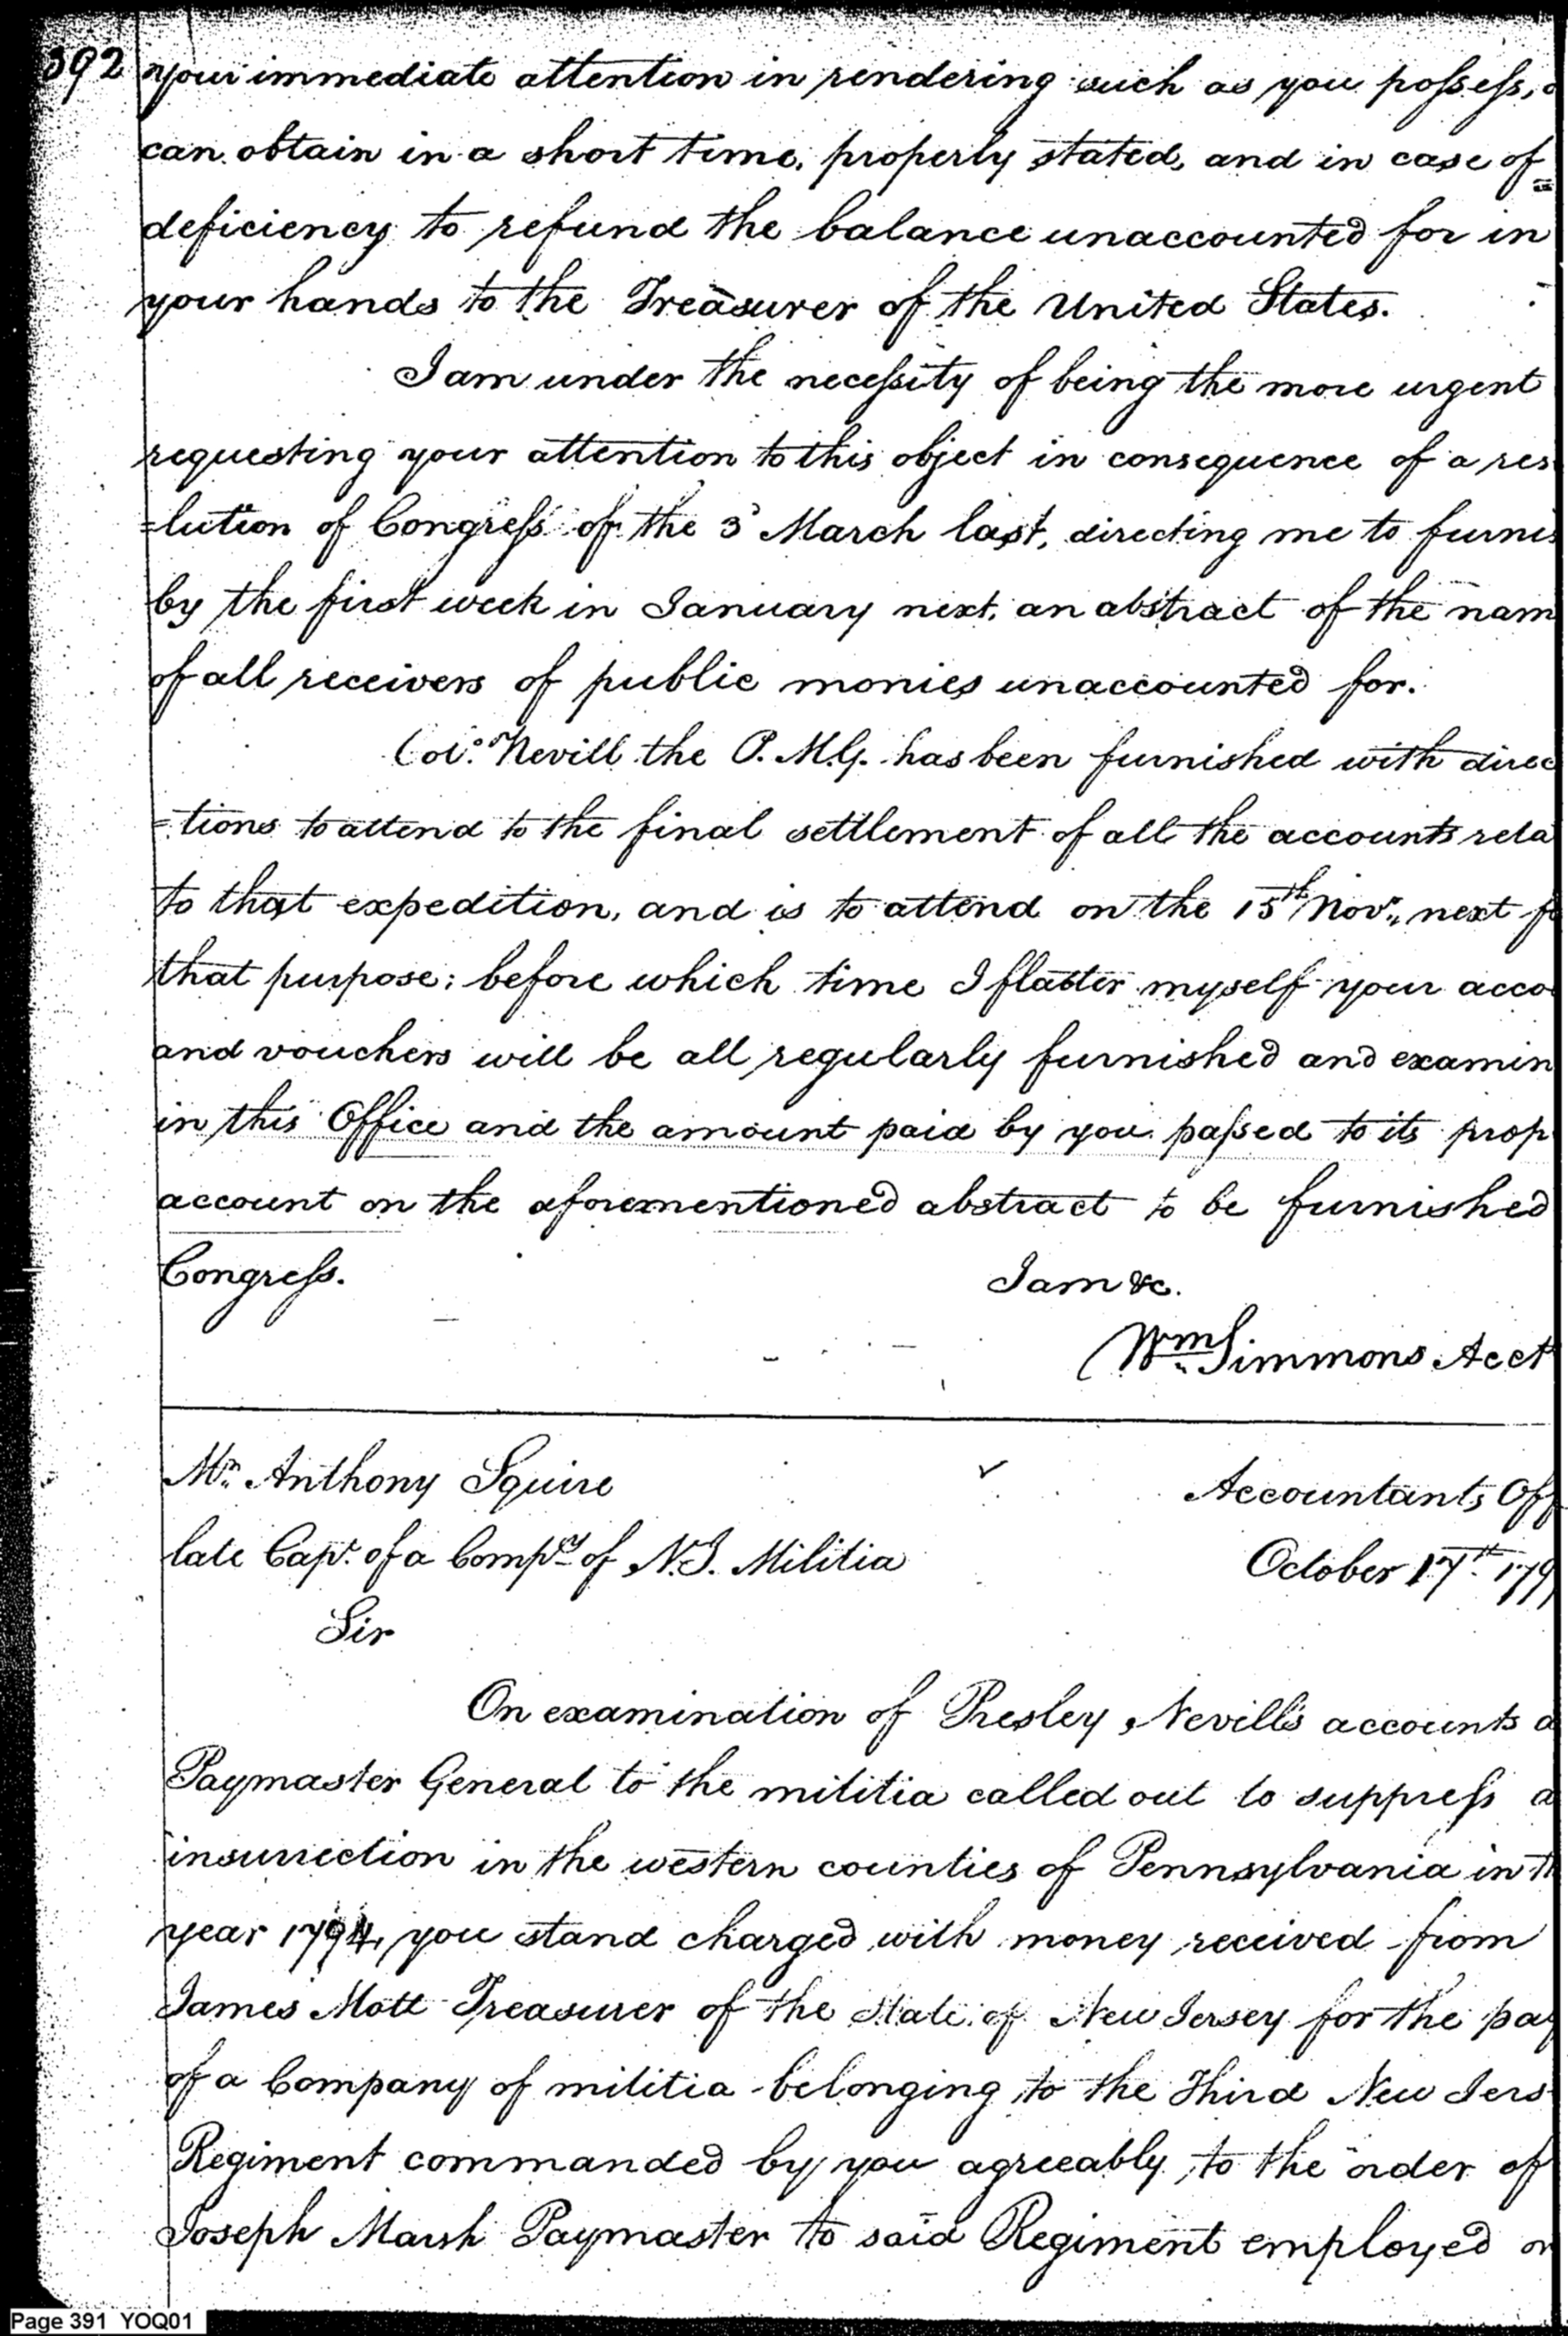 392 your immediate attention in rendering such as you possess,
can obtain in a short time, properly stated, and in case of
deficiency to refund the balance unaccounted for in
your hands to the Treasurer of the United States.
I am under the necessity of being the more urgent
requesting your attention to this object in consequence of a res
=lution of Congress of the 3d March last, directing me to furnis
by the first week in January next, an abstract of the nam
of all receivers of public monies unaccounted for.
Col. Nevill the P.M.G. has been furnished with direc
=tions to attend to the final settlement of all the accounts rela
to that expedition, and is to attend on the 15th Novr., next fo
that purpose; before which time I flatter myself your acco
and vouchers will be all regularly furnished and examin
in this Office and the amount paid by you passed to its prop
account on the aforementioned abstract to be furnished
Congress. I am &c.
Wm. Simmons Acct
Mr. Anthony Squire Accountants Off
late Capt. of a Compy of N.J. Militia October 17th 179
Sir
On examination of Presley Nevill's accounts a
Paymaster General to the militia called out to suppress a
insurrection in the western counties of Pennsylvania in th
year 1794, you stand charged with money received from
James Mott Treasurer of the State of New Jersey for the pay
of a Company of militia belonging to the Third New Jers
Regiment commanded by you agreeably to the order of
Joseph Marsh Paymaster to said Regiment employed on
Page 391 YOQ01